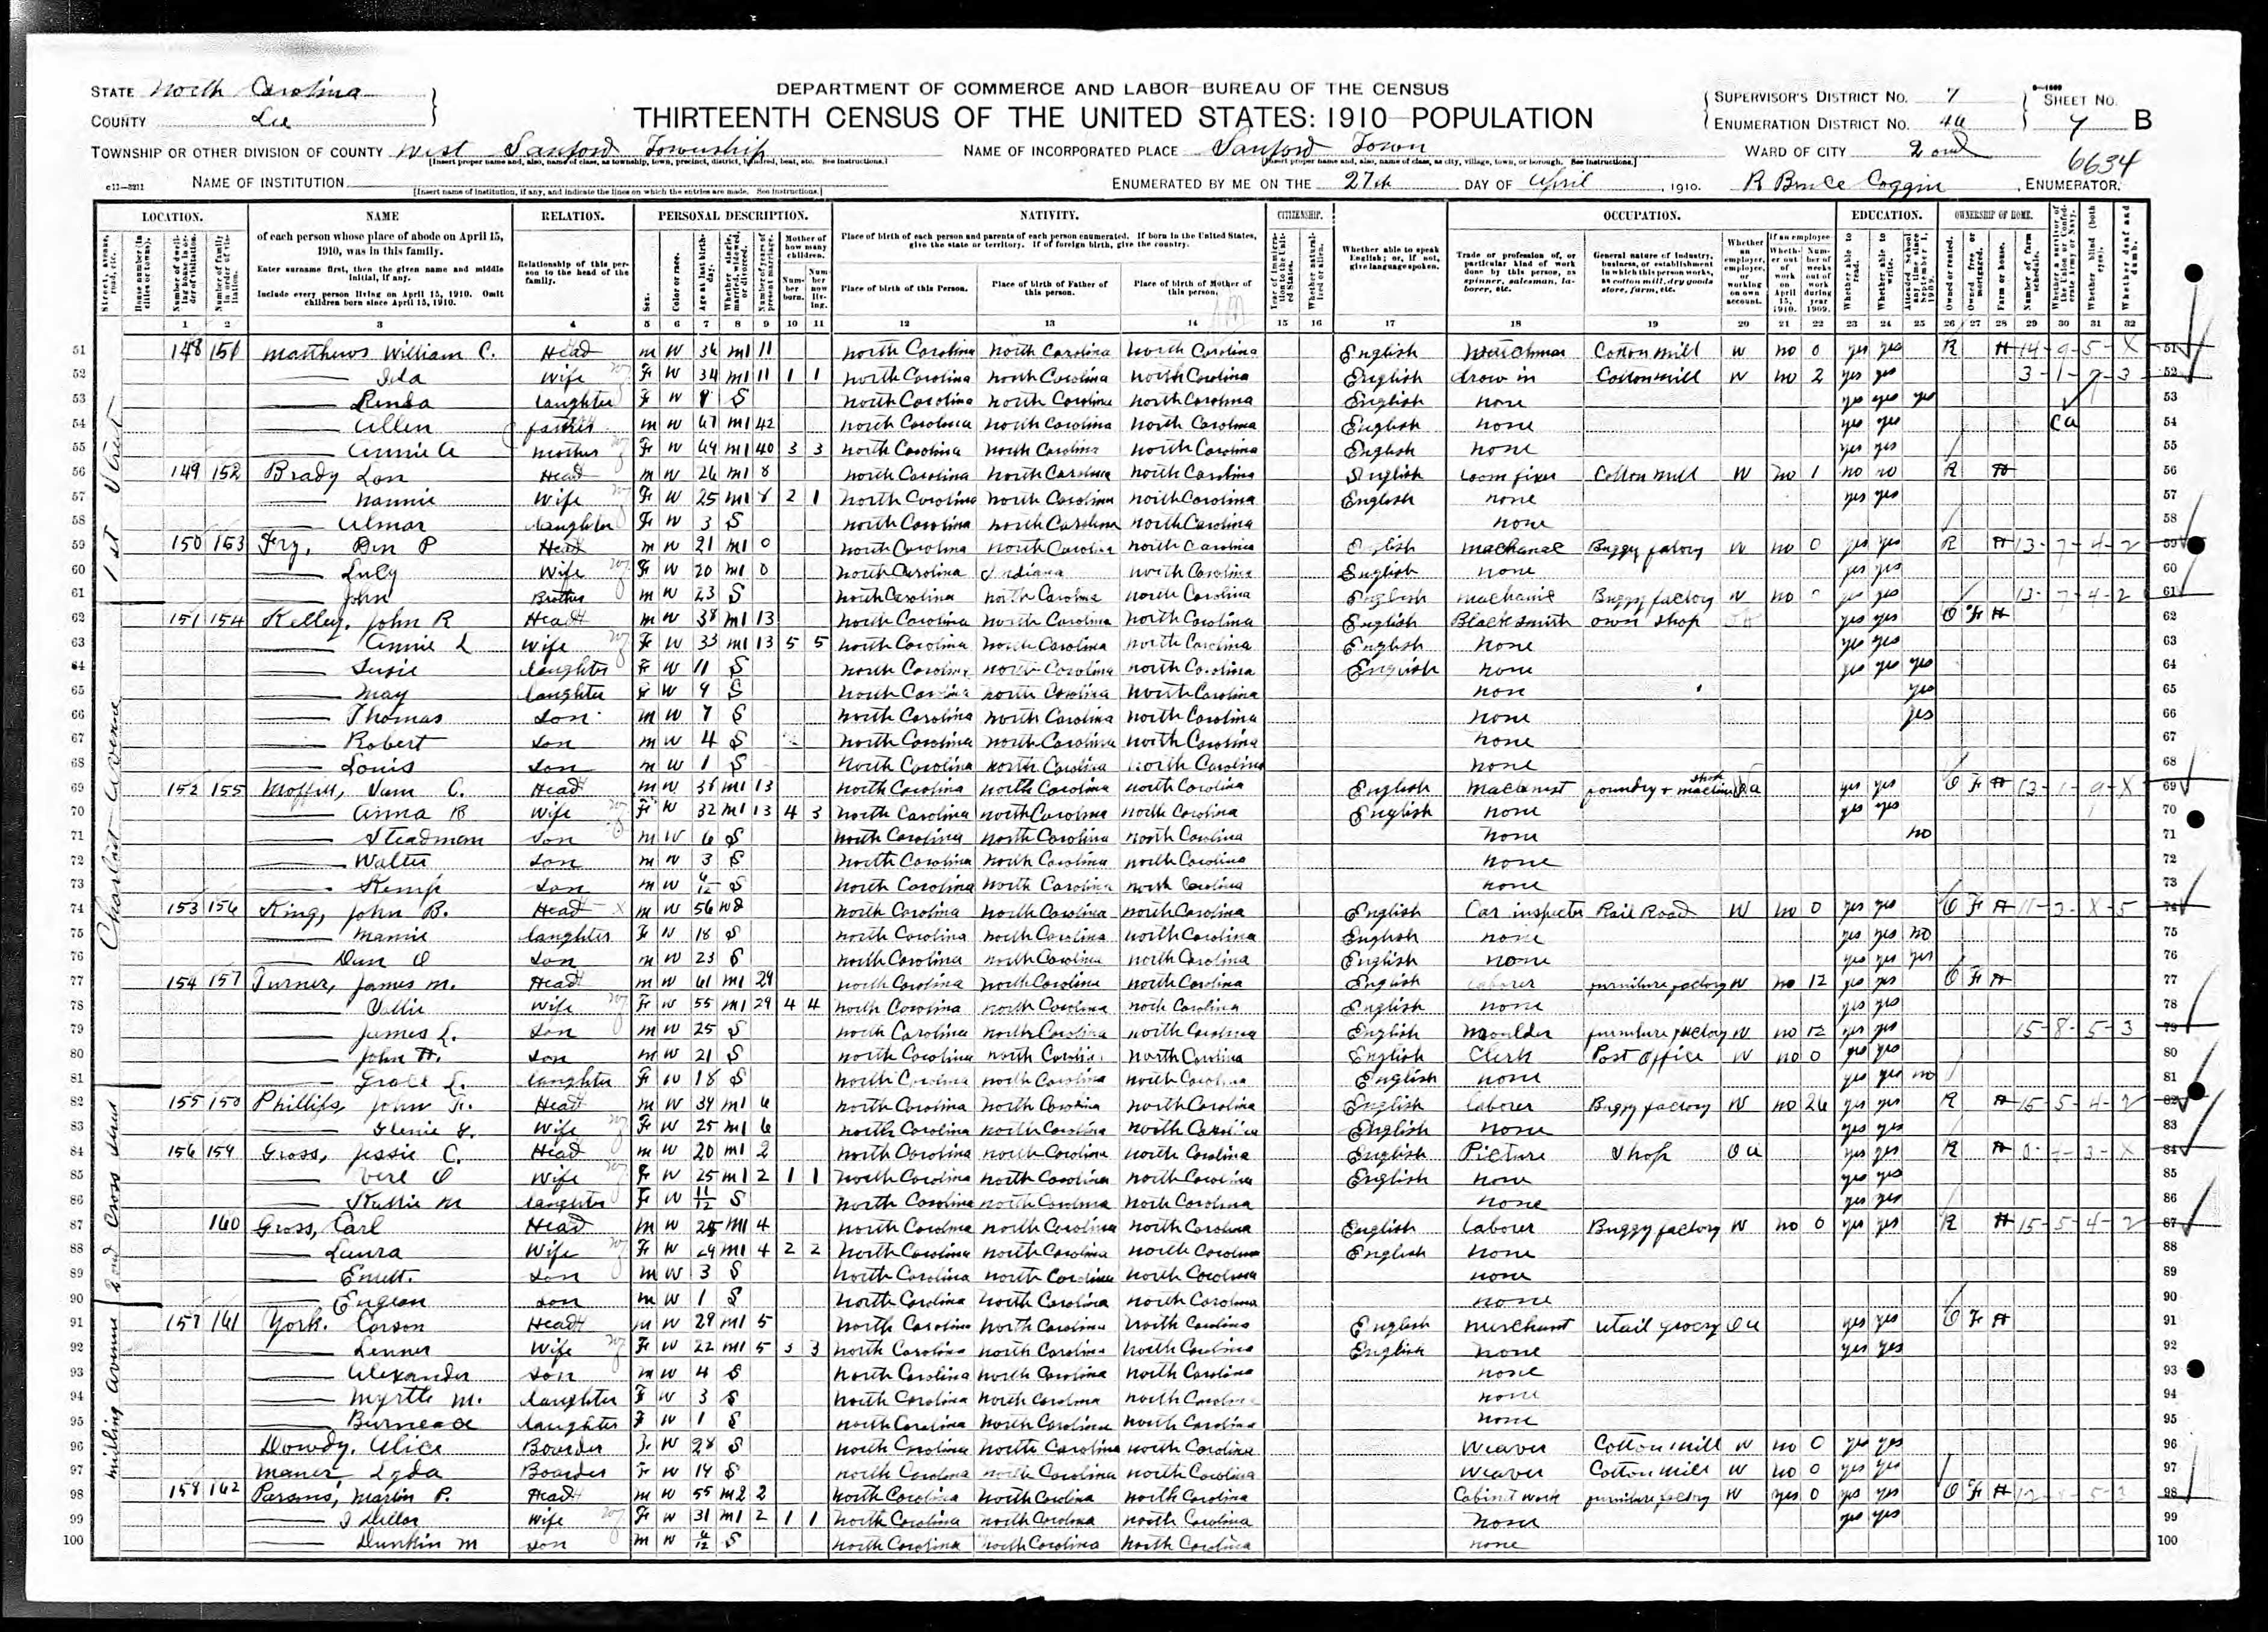 STATE North Carolina
COUNTY Lee
DEPARTMENT OF COMMERCE AND LABOR—BUREAU OF THE CENSUS
THIRTEENTH CENSUS OF THE UNITED STATES: 1910—POPULATION
SUPERVISOR'S DISTRICT No. 7
ENUMERATION DISTRICT No. 46
SHEET No. 7 B
TOWNSHIP OR OTHER DIVISION OF COUNTY West Sanford Township
NAME OF INCORPORATED PLACE Sanford Town
WARD OF CITY 2ond
6634
NAME OF INSTITUTION
ENUMERATED BY ME ON THE 27th DAY OF April, 1910. R Bruce Coggin, ENUMERATOR.
LOCATION. NAME RELATION. PERSONAL DESCRIPTION. NATIVITY. CITIZENSHIP. OCCUPATION. EDUCATION. OWNERSHIP OF HOME.
of each person whose place of abode on April 15, 1910, was in this family.
Enter surname first, then the given name and middle initial, if any.
Include every person living on April 15, 1910. Omit children born since April 15, 1910.
Relationship of this person to the head of the family.
Place of birth of each person and parents of each person enumerated. If born in the United States, give the state or territory. If of foreign birth, give the country.
Place of birth of this Person. Place of birth of Father of this person. Place of birth of Mother of this person.
1 2 3 4 5 6 7 8 9 10 11 12 13 14 15 16 17 18 19 20 21 22 23 24 25 26 27 28 29 30 31 32
51 148 151 Matthews William C. Head m W 36 m1 11 North Carolina North Carolina North Carolina English Cotton mill W no 0 yes yes R H
52 Ida Wife F W 34 m1 11 1 1 North Carolina North Carolina North Carolina English draw in Cotton mill W no 2 yes yes
53 daughter F W S North Carolina North Carolina North Carolina English none yes yes yes
54 Allen father m W 67 m1 42 North Carolina North Carolina North Carolina English none yes yes ca
55 Annie A mother F W 69 m1 40 3 3 North Carolina North Carolina North Carolina English none yes yes
56 149 152 Brady Lon Head m W 26 m1 8 North Carolina North Carolina North Carolina English Loom fixer Cotton mill W no 1 no no R H
57 Nannie Wife F W 25 m1 8 2 1 North Carolina North Carolina North Carolina English none yes yes
58 Almar daughter F W 3 S North Carolina North Carolina North Carolina none
59 150 153 Fry, Ben P Head m W 21 m1 0 North Carolina North Carolina North Carolina English machanac Buggy factory W no 0 yes yes R H 13-7-4-2
60 Luly Wife F W 20 m1 0 North Carolina Indiana North Carolina English none yes yes
61 John Brother m W 23 S North Carolina North Carolina North Carolina English machanic Buggy factory W no yes yes 13-7-4-2
62 151 154 Kelley, John R Head m W 38 m1 13 North Carolina North Carolina North Carolina English Blacksmith own shop yes yes O F H
63 Annie L Wife F W 33 m1 13 5 5 North Carolina North Carolina North Carolina English none yes yes
64 Susie daughter F W 11 S North Carolina North Carolina North Carolina English none yes yes yes
65 May daughter F W 9 S North Carolina North Carolina North Carolina none yes
66 Thomas Son m W 7 S North Carolina North Carolina North Carolina none yes
67 Robert son m W 4 S North Carolina North Carolina North Carolina none
68 Louis son m W 1 S North Carolina North Carolina North Carolina none
69 152 155 C. Head m W m1 13 North Carolina North Carolina North Carolina English machinist foundry + machine shop yes yes O F H
70 Anna B Wife F W 32 m1 13 4 3 North Carolina North Carolina North Carolina English none yes yes
71 Steadman son m W 6 S North Carolina North Carolina North Carolina none no
72 Walter son m W 3 S North Carolina North Carolina North Carolina none
73 Kemp son m W S North Carolina North Carolina North Carolina none
74 153 156 King, John B. Head m W 56 wd North Carolina North Carolina North Carolina English Car inspector Rail Road W no 0 yes yes O F H 11-3-X-5
75 Mamie daughter F W 18 S North Carolina North Carolina North Carolina English none yes yes no
76 O son m W 23 S North Carolina North Carolina North Carolina English none yes yes yes
77 154 157 Turner, James M. Head m W 61 m1 29 North Carolina North Carolina North Carolina English Laborer furniture factory W no 12 yes yes O F H
78 Wife F W 55 m1 29 4 4 North Carolina North Carolina North Carolina English none yes yes
79 James L. son m W 25 S North Carolina North Carolina North Carolina English moulder furniture factory W no 12 yes yes 15-8-5-3
80 John H. son m W 21 S North Carolina North Carolina North Carolina English Clerk Post office W no 0 yes yes
81 Grace L. daughter F W 18 S North Carolina North Carolina North Carolina English none yes yes no
82 155 158 Phillips, John F. Head m W 34 m1 6 North Carolina North Carolina North Carolina English laborer Buggy factory W no 26 yes yes R H 15-5-4-2
83 Wife F W 25 m1 6 North Carolina North Carolina North Carolina English none yes yes
84 156 159 Gross, Jessie C. Head m W 20 m1 2 North Carolina North Carolina North Carolina English Picture shop OA yes yes R H
85 Vere O Wife F W 25 m1 2 1 1 North Carolina North Carolina North Carolina English none yes yes
86 M daughter F W 11/12 S North Carolina North Carolina North Carolina none yes yes
87 160 Gross, Carl Head m W 25 m1 4 North Carolina North Carolina North Carolina English Laborer Buggy factory W no 0 yes yes R H 15-5-4-2
88 Laura Wife F W 24 m1 4 2 2 North Carolina North Carolina North Carolina English none
89 Emett. son m W 3 S North Carolina North Carolina North Carolina none
90 Engean son m W 1 S North Carolina North Carolina North Carolina none
91 157 161 York. Carson Head m W 29 m1 5 North Carolina North Carolina North Carolina English merchant retail grocery OA yes yes O F H
92 Wife F W 22 m1 5 3 3 North Carolina North Carolina North Carolina English none yes yes
93 Alexander son m W 4 S North Carolina North Carolina North Carolina none
94 Myrtle M. daughter F W 3 S North Carolina North Carolina North Carolina none
95 Burneace daughter F W 1 S North Carolina North Carolina North Carolina none
96 Dowdy, Alice Boarder F W 28 S North Carolina North Carolina North Carolina Weaver Cotton mill W no 0 yes yes
97 Maner Lyda Boarder F W 19 S North Carolina North Carolina North Carolina Weaver Cotton mill W no 0 yes yes
98 158 162 Parsons, Martin P. Head m W 55 m2 2 North Carolina North Carolina North Carolina Cabinet work furniture factory W yes 0 yes yes O F H
99 Wife F W 31 m1 2 1 1 North Carolina North Carolina North Carolina none yes yes
100 Dunkin M son m W S North Carolina North Carolina North Carolina none